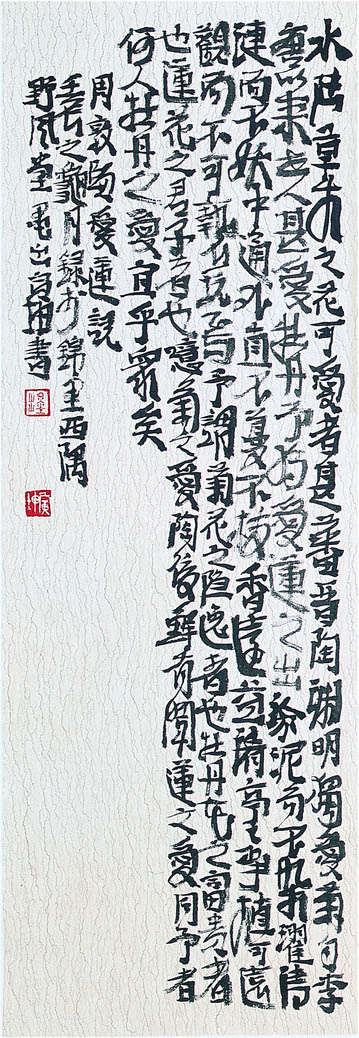 水陸草木之花可愛者甚蕃晉陶淵明獨愛菊自李
唐以来世人甚愛牡丹予獨愛蓮之出淤泥而不染濯清
漣而不妖中通外直不蔓不枝香遠益清亭亭净植可遠
觀而不可褻玩焉予謂菊花之隐逸者也牡丹花之富貴者
也蓮花之君子者也噫菊之愛陶後鮮有聞蓮之愛同予者
何人牡丹之愛宜乎衆矣
周敦頤愛蓮說
之龝月録於錦里西隅
野風堂書